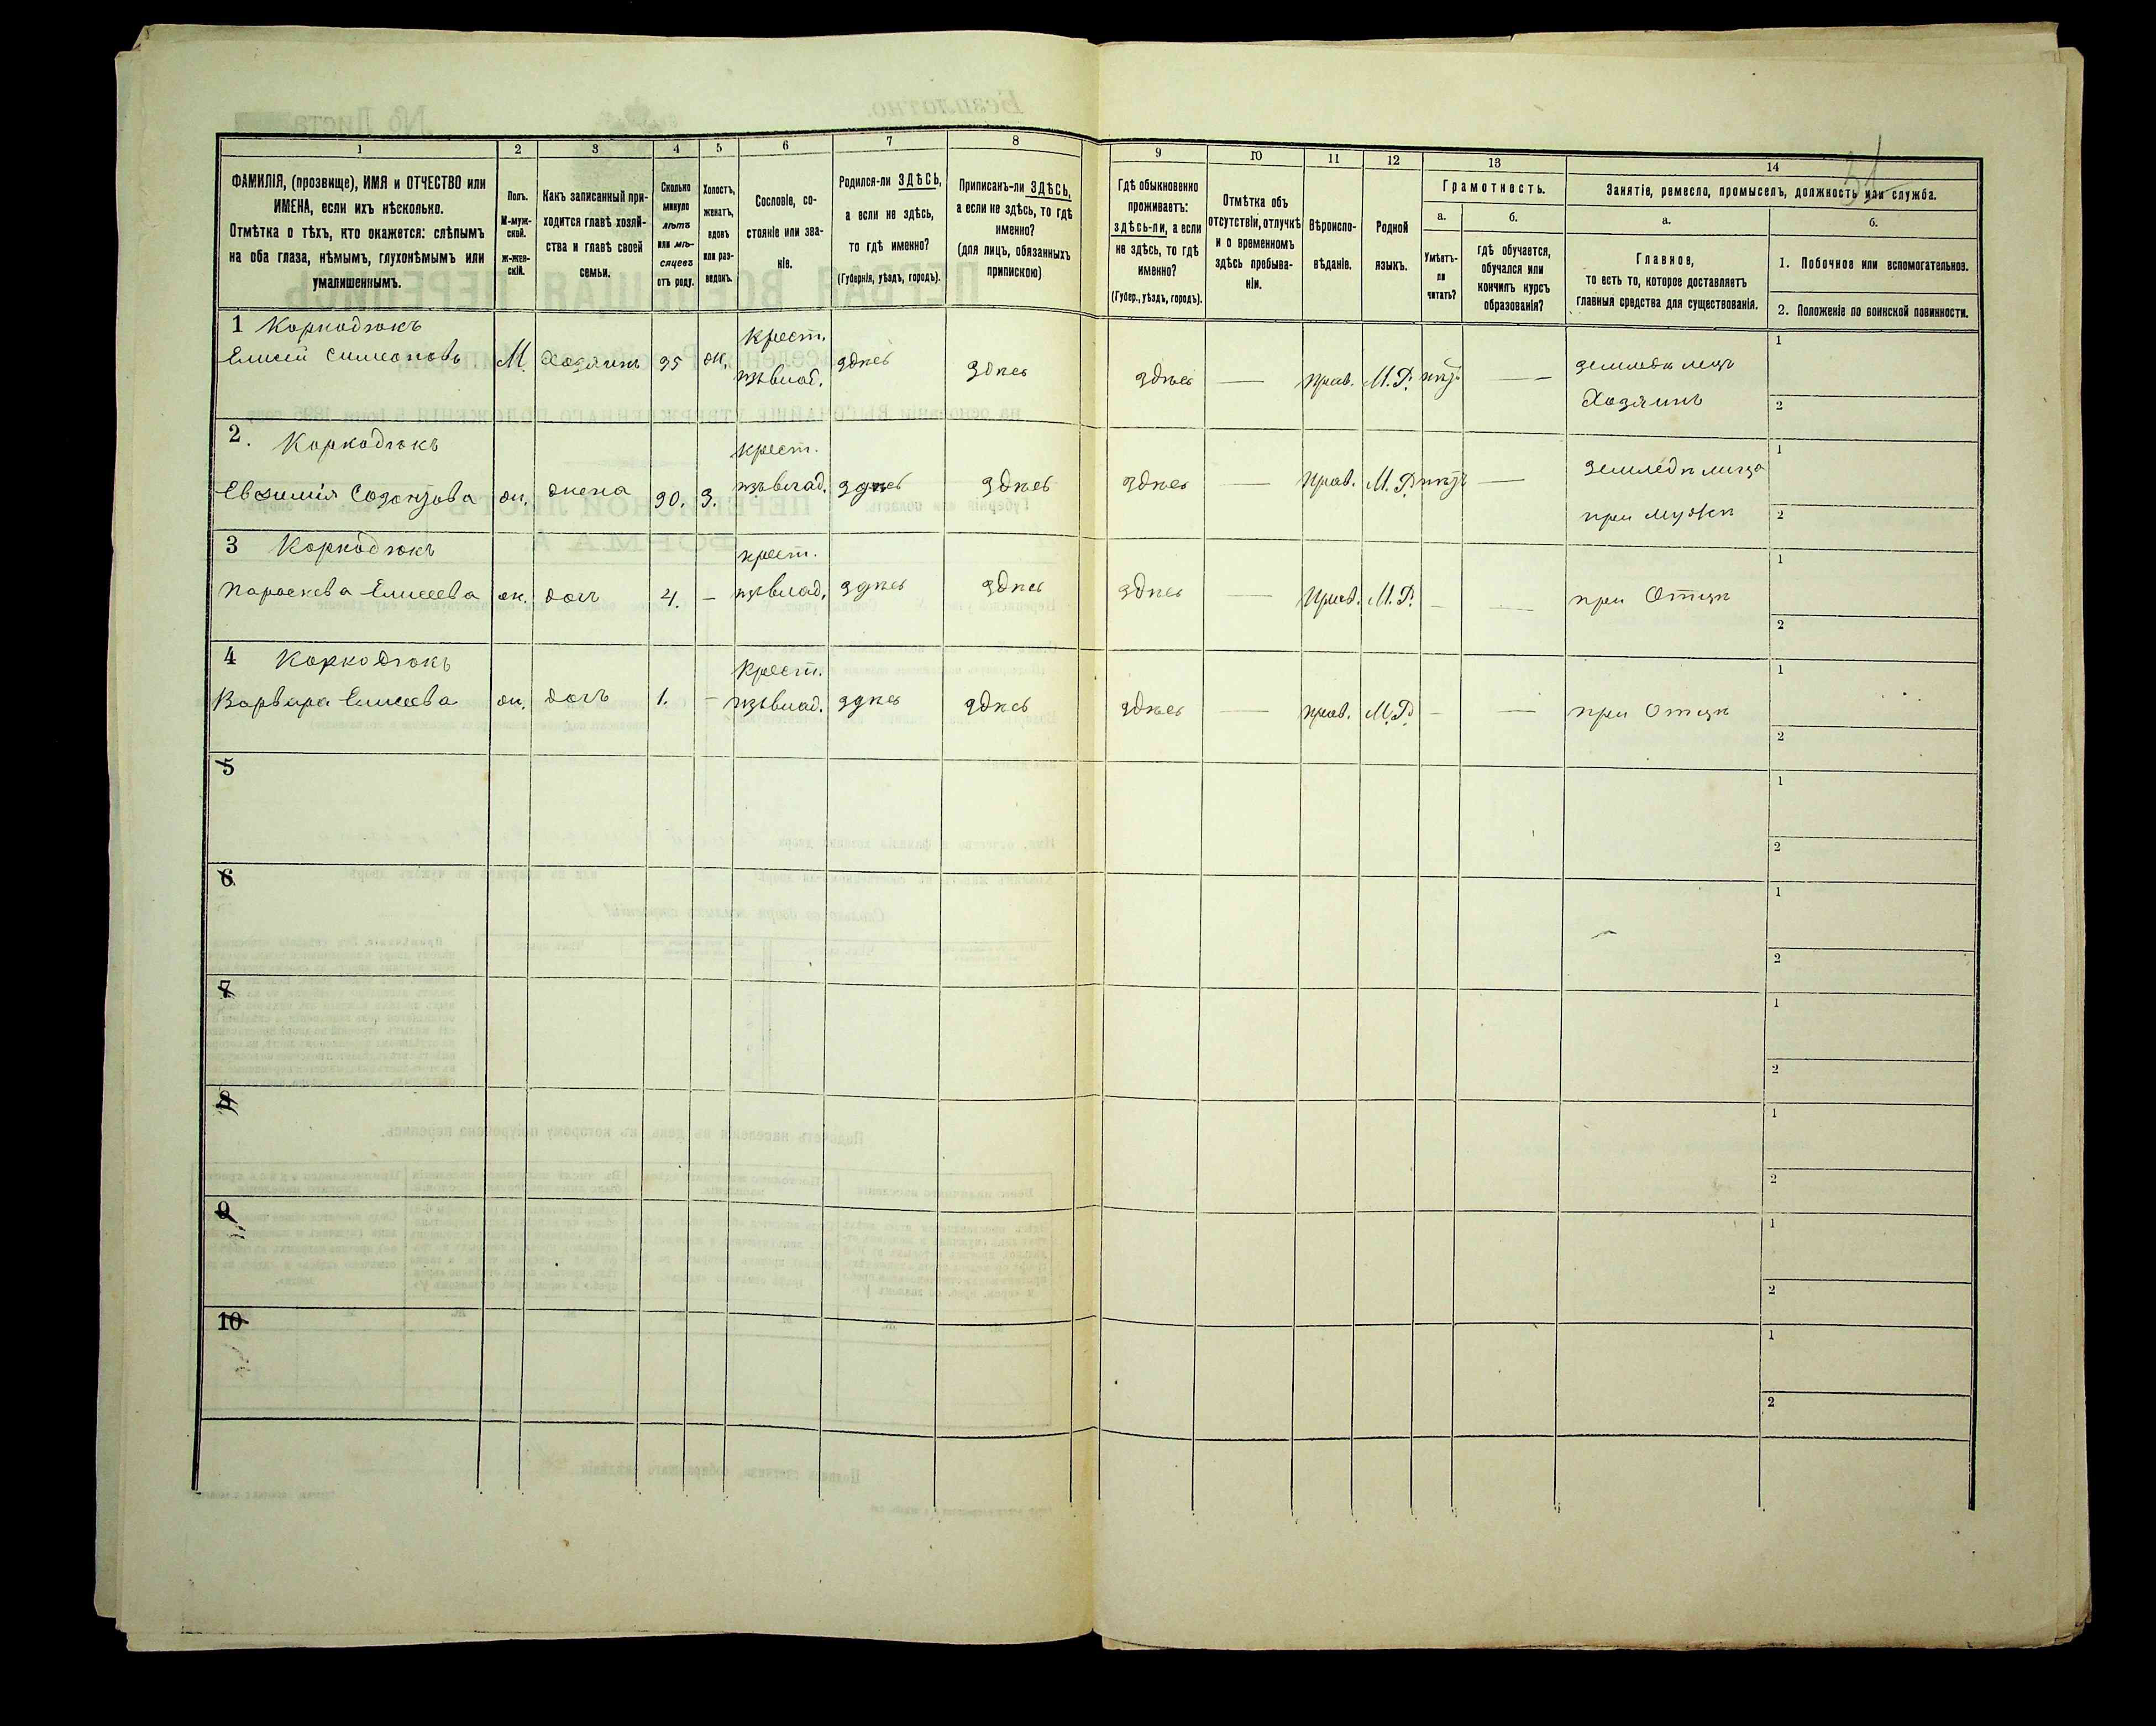 31
1
2
3
4
5
6
7
8
9
10
11
12
13
14
ФАМИЛІЯ, (прозвище), ИМЯ и ОТЧЕСТВО или
ИМЕНА, если ихъ нѣсколько.
Отмѣтка о тѣхъ, кто окажется: слѣпымъ
на оба глаза, нѣмымъ, глухонѣмымъ или
умалишеннымъ.
Полъ.
М-муж-
ской.
ж-жен-
скій.
Какъ записанный при-
ходится главѣ хозяй-
ства и главѣ своей
семьи.
Сколько
минуло
лѣтъ
или мѣ-
сяцевъ
отъ роду.
Холостъ,
женатъ,
вдовъ
или раз-
веденъ.
Сословіе, со-
стояніе или зва-
ніе.
Родился-ли ЗДѢСЬ,
а если не здѣсь,
то гдѣ именно?
(Губернія, уѣздъ, городъ).
Приписанъ-ли ЗДѢСЬ,
а если не здѣсь, то гдѣ
именно?
(для лицъ, обязанныхъ
припискою)
Гдѣ обыкновенно
проживаетъ:
здѣсь-ли, а если
не здѣсь, то гдѣ
именно?
(Губер., уѣздъ, городъ).
Отмѣтка объ
отсутствіи, отлучкѣ
и о временномъ
здѣсь пребыва-
ніи.
Вѣроиспо-
вѣданіе.
Родной
языкъ.
Грамотность.
а.
б.
Умѣетъ-
ли
читать?
гдѣ обучается,
обучался или
кончилъ курсъ
образованія?
Занятіе, ремесло, промыселъ, должность или служба.
а.
б.
Главное,
то есть то, которое доставляетъ
главныя средства для существованія.
1. Побочное или вспомогательное.
2. Положеніе по воинской повинности.
1 Коркодюкъ
Елисей Симеоновъ М. Хозяинъ 35 ж. Крест. здѣсь здѣсь здѣсь — прав. М.Р. — земледѣлецъ
Хозяинъ
1
2
2. Коркодюкъ
Евфимія ж. жена 30. З. крест. здѣсь здѣсь здѣсь — прав. М.Р. — земледѣлица
при мужѣ
1
2
3 Коркодюкъ
Параскева Елисеева ж. дочь 4. — крест. здѣсь здѣсь здѣсь — прав. М.Р. — — при Отцѣ
1
2
4 Коркодюкъ
Варвара Елисеева ж. дочь 1. — Крест. здѣсь здѣсь здѣсь — прав. М.Р. — — при Отцѣ
1
2
5
1
2
6
1
2
7
1
2
8
1
2
9
1
2
10
1
2